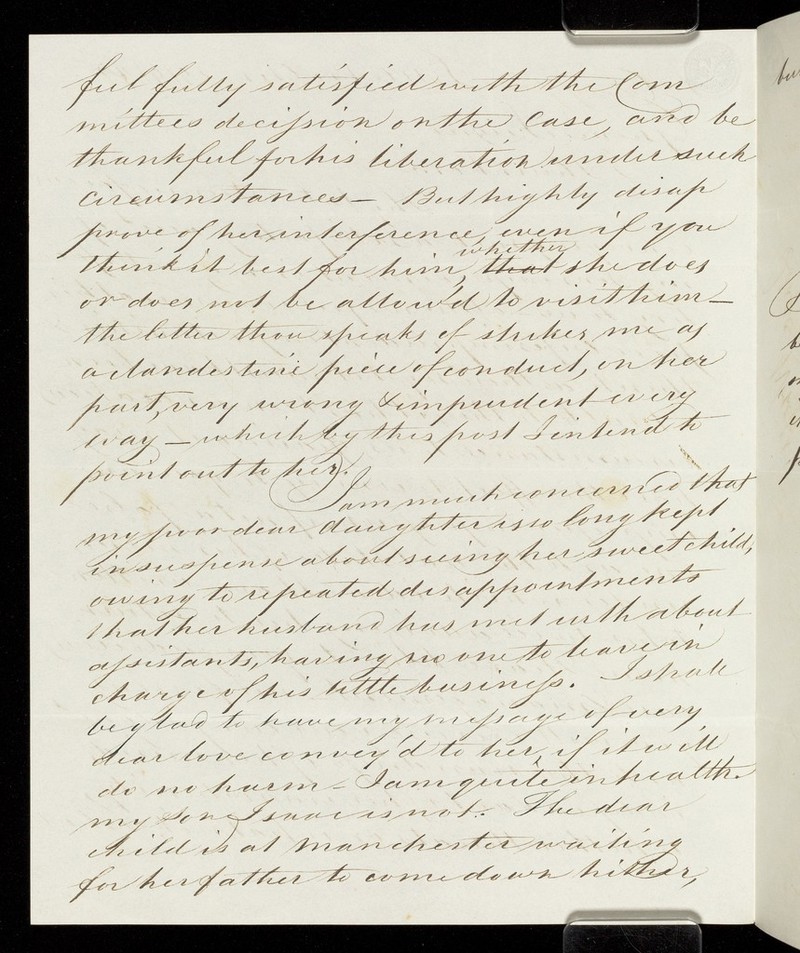 feel fully satisfied with the Com
mittees decision on the Case, and be
thankful for his liberation under such
circumstances — But highly disap
prove of her interference, even if you
think it best for him, whether that she does
or does not be allow'd to visit him —
the letter thou speaks of strikes me as
a clandestine piece of conduct, on her
part, very wrong & imprudent every
way — which by this post I intend to
point out to her.
I am much concerned that
my poor dear daughter is so long kept
in suspense about seeing her sweet child,
owing to repeated disappointments
that her husband has met with about
assistants, having no one to leave in
charge of his little business. I shall
be glad to have my message of very
dear love convey'd to her, if it will
do no harm — I am quite in health
my son Isaac is not. The dear
child is at Manchester waiting
for her father to come down hither,